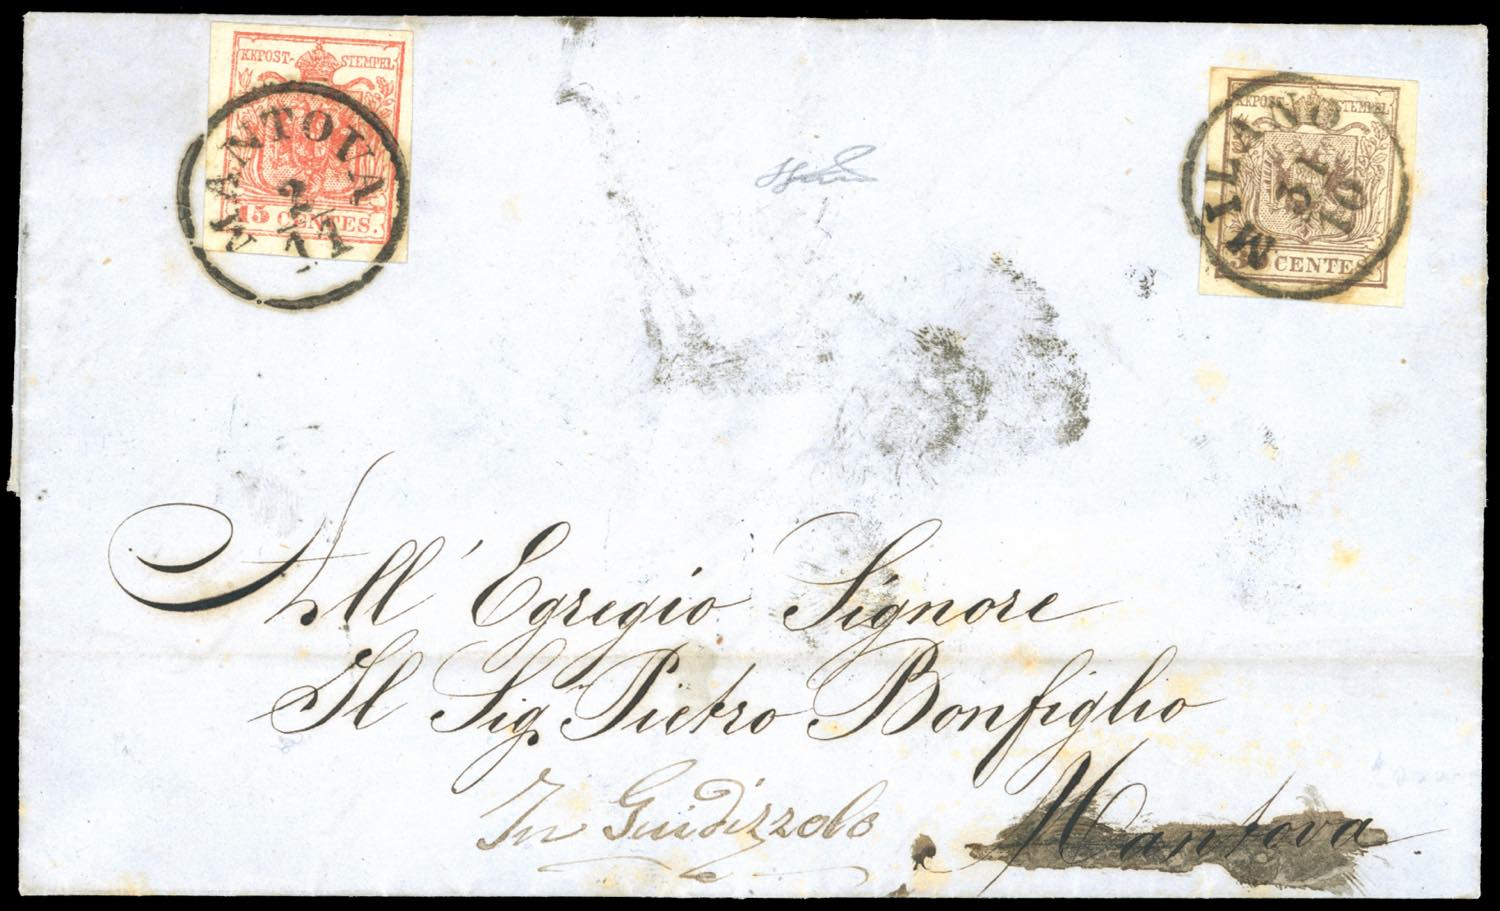 KKPOST-STEMPEL
MANTOVA
2/11
15 CENTES.
KKPOST-STEMPEL
MILANO
31
10
30 CENTES.
All' Egregio Signore
Il Sig. Pietro Bonfiglio
In Guidizzolo
Mantova